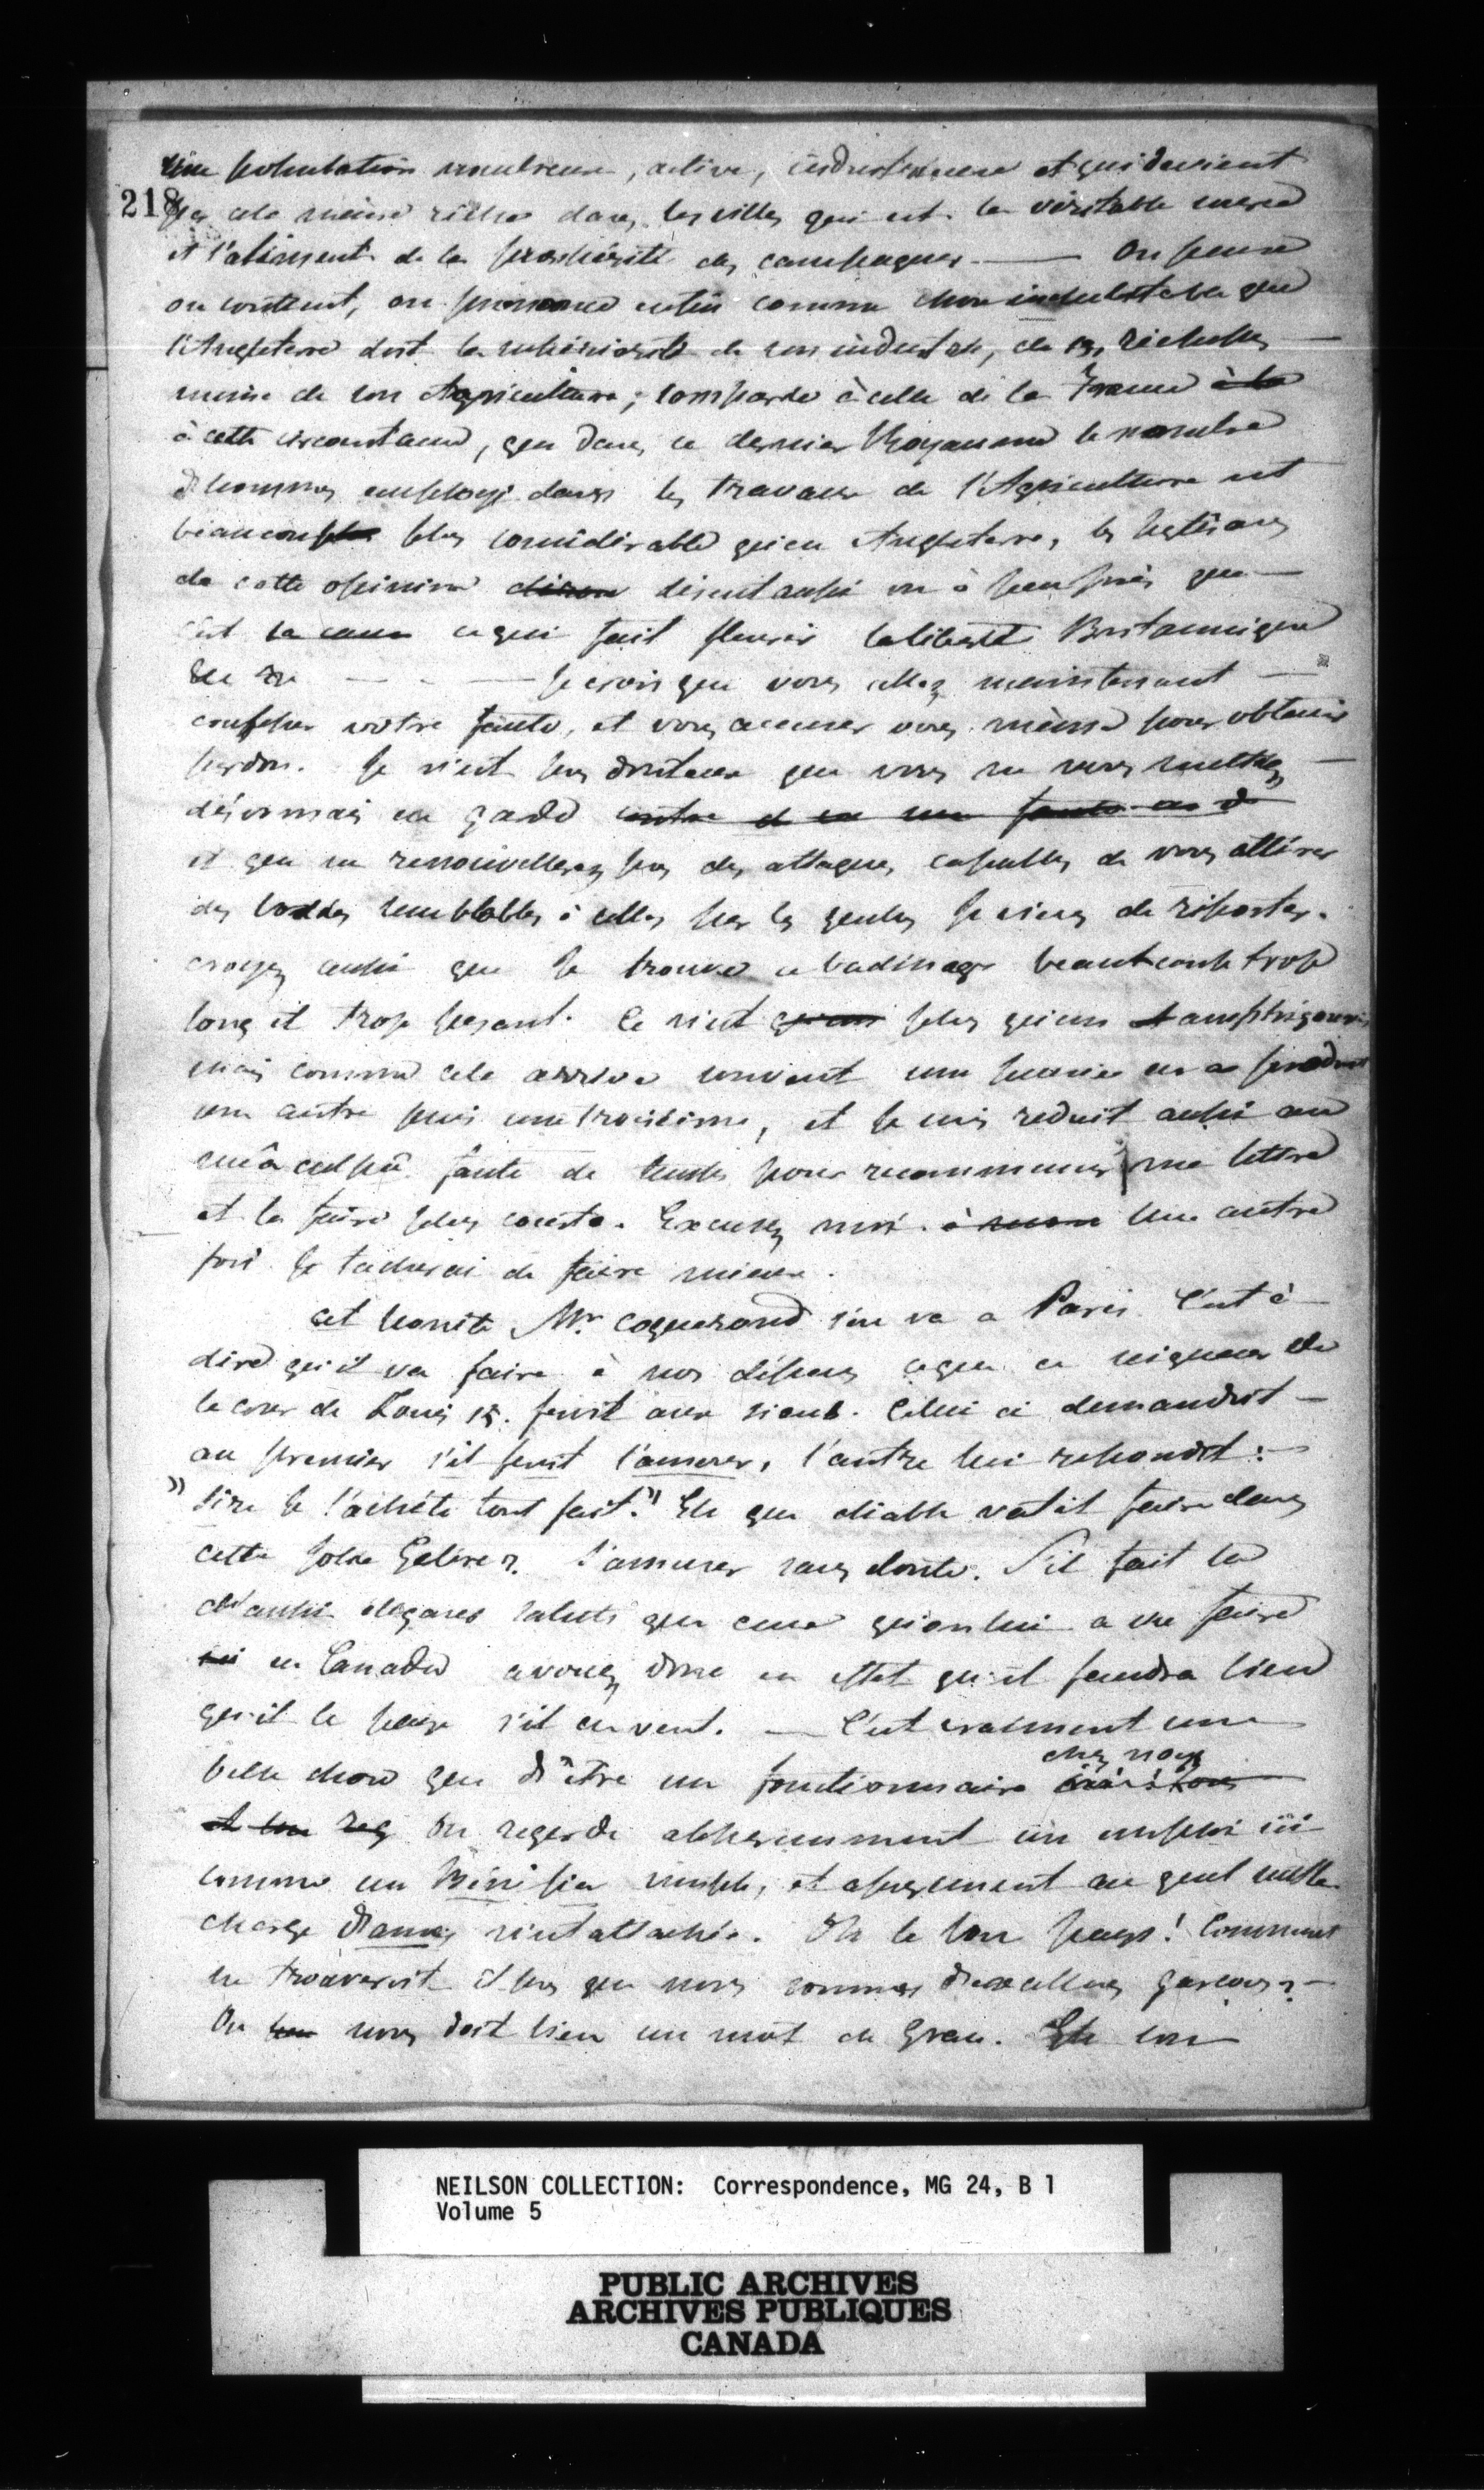 une population nombreuse, active, industrieuse et qui devient
218
par cela même riche dans les villes qui est la véritable source
et l'aliment de la prospérité des campagnes. — On pense
on soutient, on prononce enfin comme chose indubitable que
l'Angleterre doit la supériorité de son industrie, de ses richesses —
même de son Agriculture, comparée à celle de la France à la
à cette circonstance, que dans ce dernier Royaume le nombre
d'hommes employé dans les travaux de l'Agriculture est
beaucoup plus considérable qu'en Angleterre, les
de cette opinion disent aussi ou à peu près que —
c'est la cause ce qui fait fleurir la liberté Britannique
— Je crois que vous allez maintenant —
confesser votre faute, et vous accuser vous même pour obtenir
pardon. Je n'est pas douteux que vous ne vous mettiez —
désormais en garde contre
et que ne renouvellerez pas des attaques capables de vous attirer
des semblables à celles par les quelles je viens de riposter.
croyez aussi que je trouve ce badinage beaucoup trop
long et trop pesant. Ce n'est qu'un plus qu'un amphigouri
mais comme cela arrive souvent une pensée en a produit
une autre puis une troisième, et je suis reduit aussi au
meâ culpâ faute de temps pour recommencer ma lettre
et la faire plus courte. Excusez moi. Une autre
fois je tacherai de faire mieux.
Cet honête Mr. Coquerand s'en va a Paris C'est à
dire qu'il va faire à nos dépens ce que ce seigneur de
la cour de Louis 15. fesoit aux siens. Celui ci demandoit —
au premier s'il fesoit l'amour, l'autre lui repondit: —
" Sire je l'achète tout fait." Eh que diable va til faire dans
cette jolie Galère? S'amuser sans doute. S'il fait là
d'aussi élégans saluts que ceux qu'on lui a vu faire
ici en Canada avouez donc en effet qu'il faudra bien
qu'il le paye s'il en veut. — C'est vraiment une
chez nous
belle chose que d'être un fonctionnaire
On regarde absolument un emploi ici
comme un Bénéfice simple, et assurement au quel nulle
charge d'ames n'est attachée. Oh le bon pays! Comment
ne trouveroit il pas que nous sommes d'excellens garçons? —
On nous doit bien un mot de Grace. Eh bon
NEILSON COLLECTION: Correspondence, MG 24, B 1
Volume 5
PUBLIC ARCHIVES
ARCHIVES PUBLIQUES
CANADA